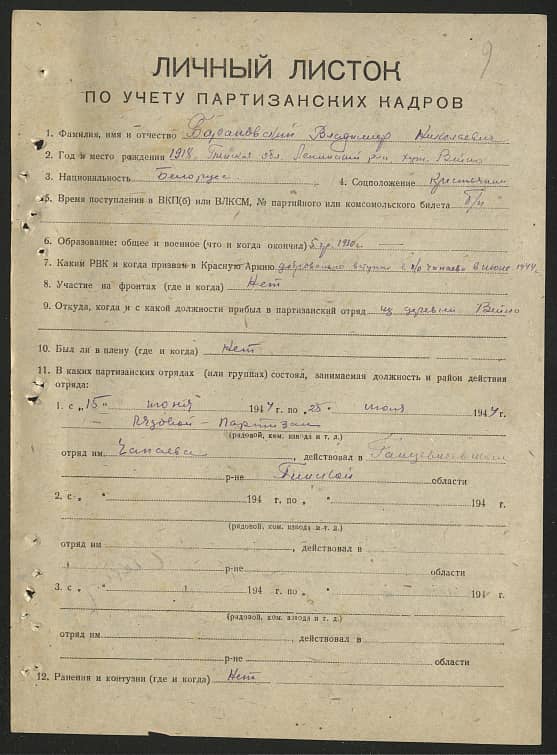 9
ЛИЧНЫЙ ЛИСТОК
ПО УЧЕТУ ПАРТИЗАНСКИХ КАДРОВ
1. Фамилия, имя и отчество Барановский Владимир Николаевич
2. Год и место рождения 1918, Пинская обл. Ленинский р-н. хут. Вейно
3. Национальность Белорус 4. Соцположение Крестьянин
5. Время поступления в ВКП(б) или ВЛКСМ, № партийного или комсомольского билета б/п
6. Образование: общее и военное (что и когда окончил) 1930 г.
7. Каким РВК и когда призван в Красную Армию добровольно вступил в п/о Чапаева в июне 1944 г.
8. Участие на фронтах (где и когда) Нет
9. Откуда, когда и с какой должности прибыл в партизанский отряд из деревни Вейно
10. Был ли в плену (где и когда) Нет.
11. В каких партизанских отрядах (или группах) состоял, занимаемая должность и район действия
отряда:
1. с „15" июня 1944 г. по „25" июля 1944 г.
— Рядовой — Партизан
(рядовой, ком. взвода и т. д.)
отряд им. Чапаева, действовал в Ганцевичском
р-не Пинской области
2. с „ " 194 г. по „ " 194 г.
(рядовой, ком. взвода и т. д.)
отряд им, действовал в
р-не области
3. с „ " 194 г. по „ " 194 г.
(рядовой, ком. взвода и т. д.)
отряд им., действовал в
р-не области
12. Ранения и контузии (где и когда) Нет